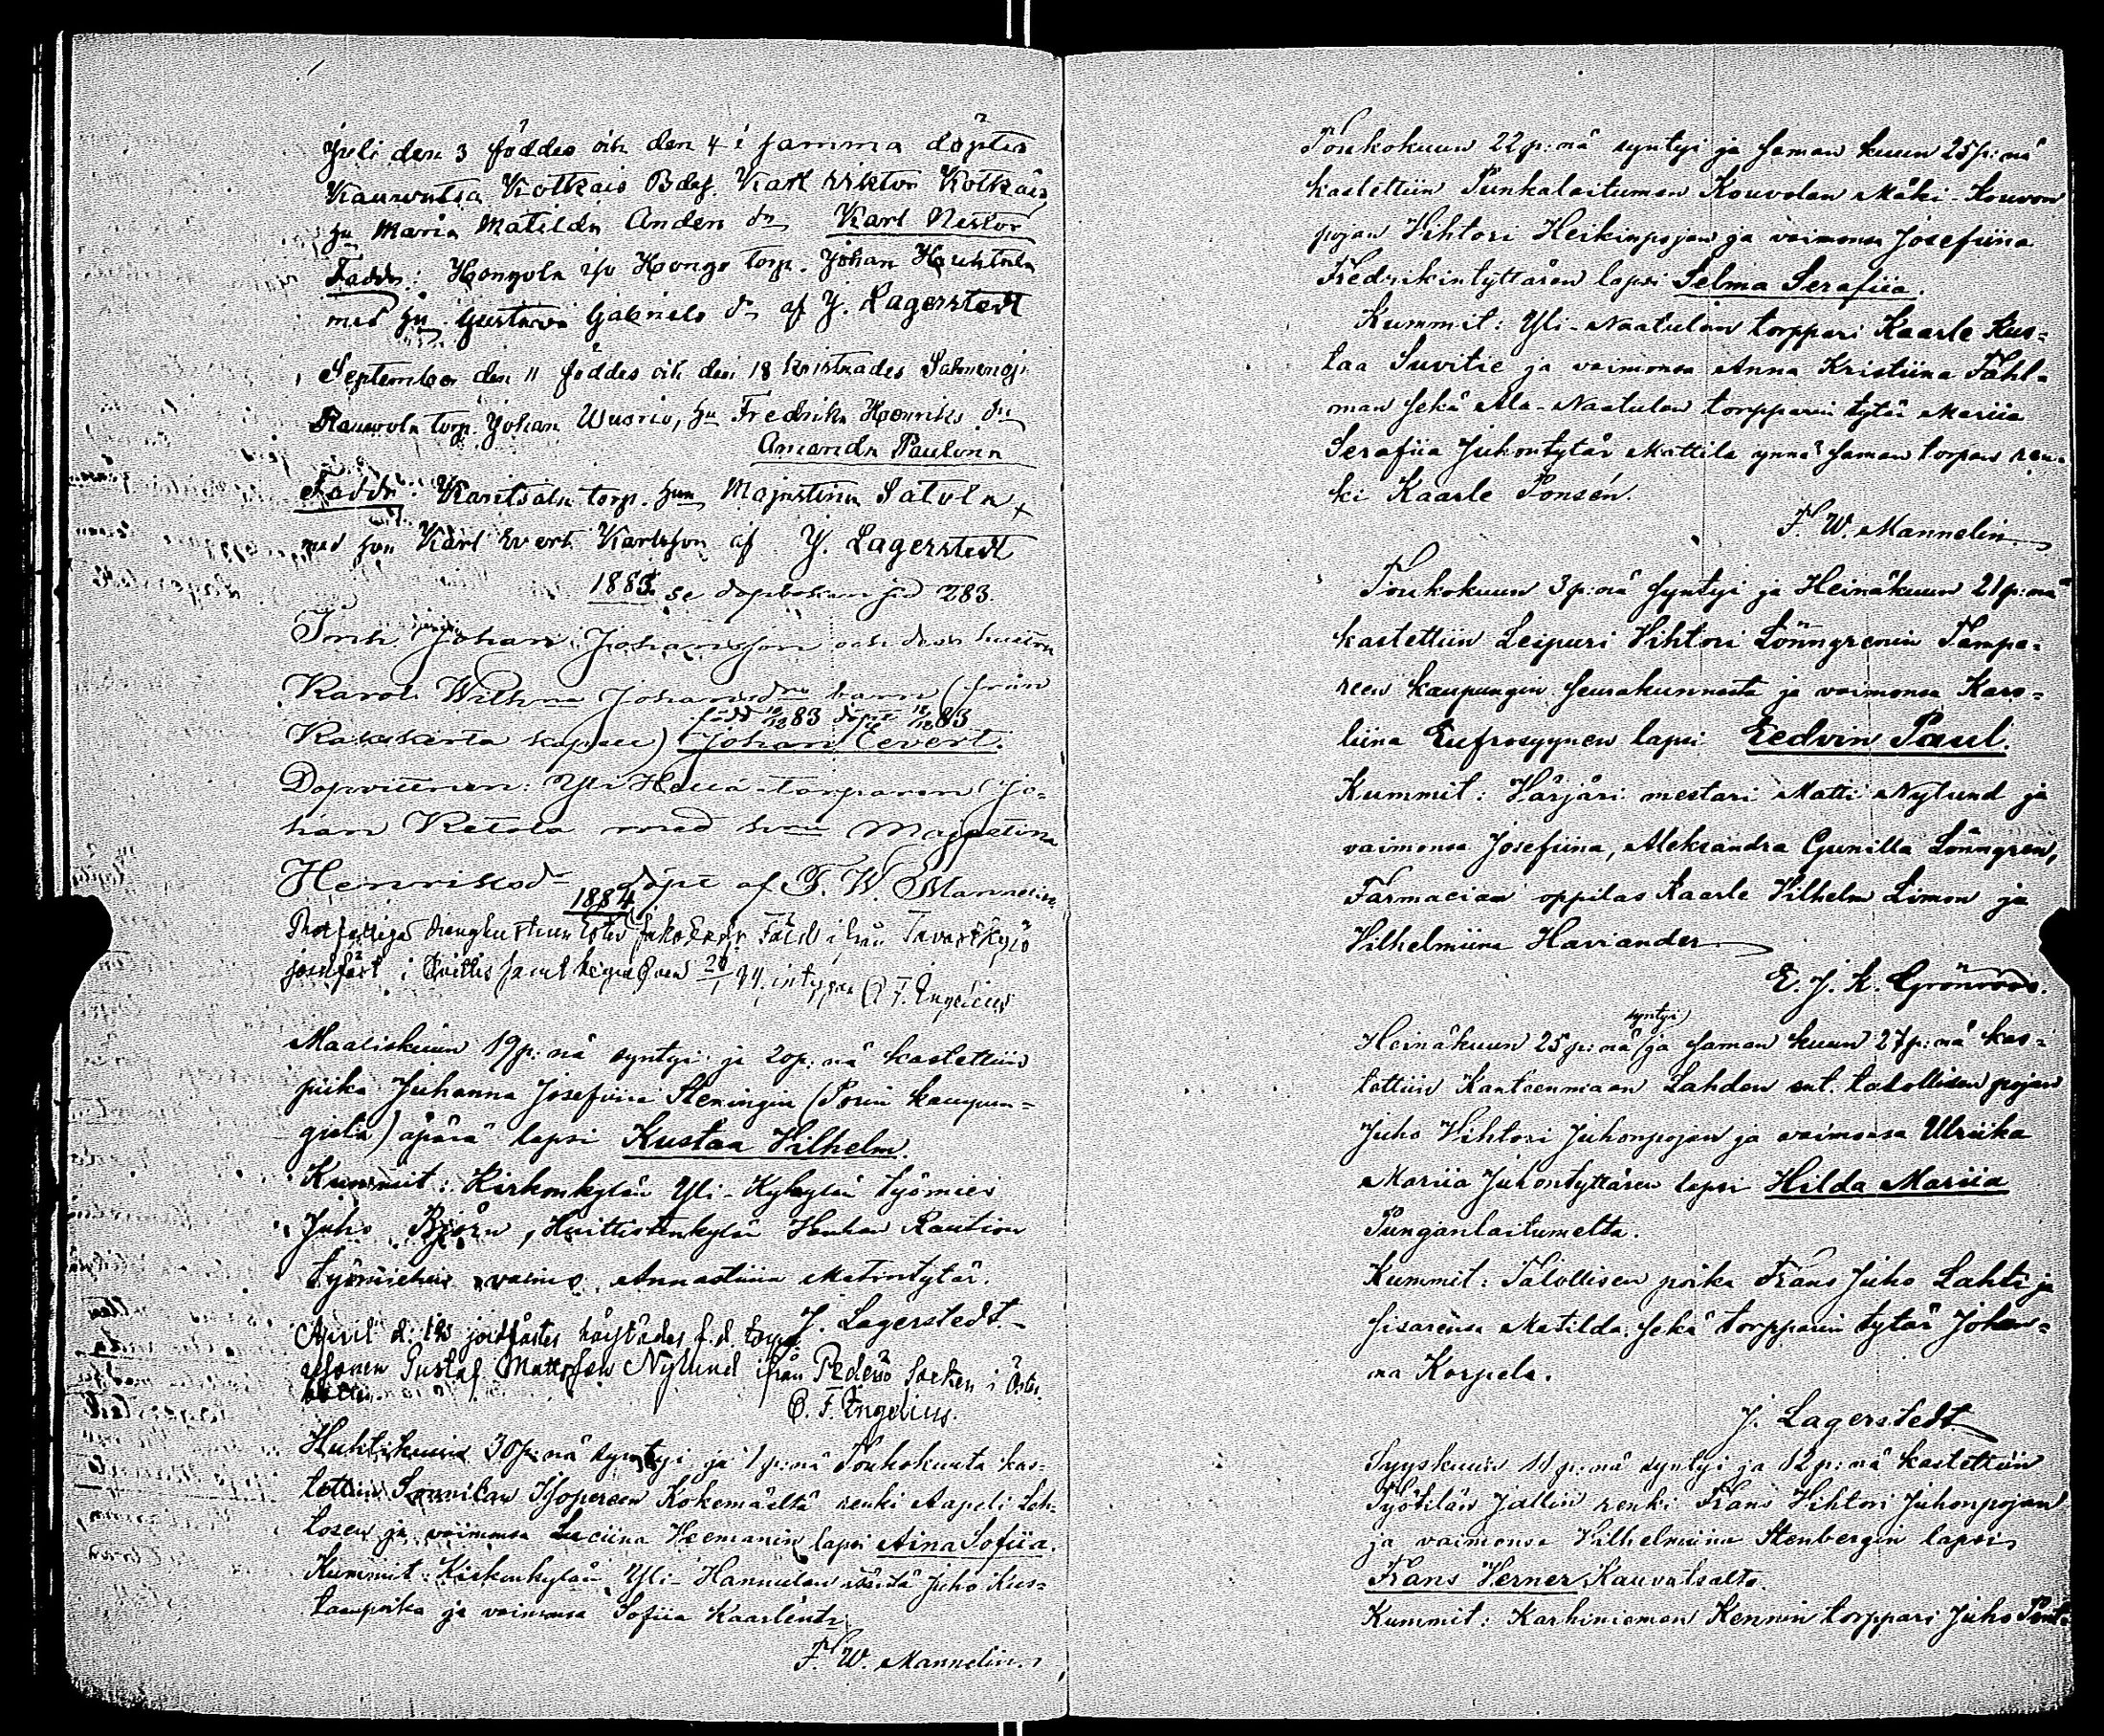 Juli den 3 föddes och den 4 i samma döptes
Kauvatsa Kotkais Bdas. Karl Viktor Kotkais
hu Maria Matilda Anders dr Karl Nestor
Faddr: Hongola Yli Hongo torp. Johan Huhtala
med hu Gustava Gabriels dr af J. Lagerstedt
September den 11 föddes och den 18 kristnades
torp. Johan Wuorio, hu Fredrika Henriks dr
Amanda Paulina
Faddr: torp. hu Majastina Satula
med son Karl Evert Karlsson af J. Lagerstedt
1883. se dopboken sid 283.
Inh. Johan Johansson och dess hustru
Karol. Wilhna Johansdrs barn (från
född 10/12 83 döpt 12/12 83
kapell) Johan Eevert.
Dopvittnen: Yli torparen Jo-
han Ketola med hu Majastina
Henriksdr döpt af F. W. Mannelin.
1884
Tavastkyrö
jordfäst i C. F. Engelius
Maaliskuun 19 p:nä syntyi ja 20 p:nä kastettiin
piika Juhanna Josefiina Steningin (Porin kaupun-
gista) äpärä lapsi Kustaa Vilhelm.
Kummit: Kirkonkylän Yli-Kykylän työmies
Juho Björn, Huittistenkylän Hanhan Raution
työmiehen vaimo Annastiina Matintytär.
J. Lagerstedt
April d: jordfästes f.d.
Gustaf Mattsson Nylund ifrån Pedersö Socken i Öster-
botten. C. F. Engelius.
Huhtikuun 30 p:nä syntyi ja 1 p:nä Toukokuuta kas-
tettiin Sonnilan Kokemäeltä renki Aapeli Leh-
tosen ja vaimonsa Luciina Heemanin lapsi Aina Sofiia.
Kummit: Kirkonkylän Yli-Hannulan isäntä Juho Kus-
taanpoika ja vaimonsa Sofiia Kaarlentr
F. W. Mannelin.
Toukokuun 22 p:nä syntyi ja saman kuun 25 p:nä
kastettiin Punkalaitumen Kouvolan Mäki-Kouvon
pojan Vihtori Heikinpojan ja vaimonsa Josefiina
Fredrikintyttären lapsi Selma Serafiia.
Kummit: Yli-Naatulan torppari Kaarle Kus-
taa Suvitie ja vaimonsa Anna Kristiina Fahl-
man sekä Ala-Naatulan torpparin tytär Mariia
Serafiia Juhontytär Mattila ynnä saman torpan ren-
ki Kaarle Ponsén.
F. W. Mannelin
Toukokuun 3 p:nä syntyi ja Heinäkuun 21 p:nä
kastettiin Leipuri Vihtori Lönngrenin Tampe-
reen kaupungin seurakunnasta ja vaimonsa Karo-
liina Eufrosyynen lapsi Eedvin Paul.
Kummit: Värjäri mestari Matti Nylund ja
vaimonsa Josefiina, Aleksandra Gunilla Lönngren,
Farmacian oppilas Kaarle Vilhelm Limon ja
Vilhelmiina Haviander
E. J. K. Grönroos.
syntyi
Heinäkuun 25 p:nä ja saman kuun 27 p:nä kas-
tettiin Kanteenmaan Lahden ent. talollisen pojan
Juho Vihtori Juhonpojan ja vaimonsa Ulriika
Mariia Juhontyttären lapsi Hilda Mariia
Punganlaitumelta.
Kummit: Talollisen poika Frans Juho Lahti ja
sisarensa Matilda sekä torpparin tytär Johan-
na Korpela.
J. Lagerstedt
Syyskuun 11 p:nä syntyi ja 12 p:nä kastettiin
Työtilän Jallin renki Frans Vihtori Juhonpojan
ja vaimonsa Vilhelmiina Stenbergin lapsi
Frans Verner Kauvatsalta.
Kummit: Karhiniemen Kennin torppari Juho